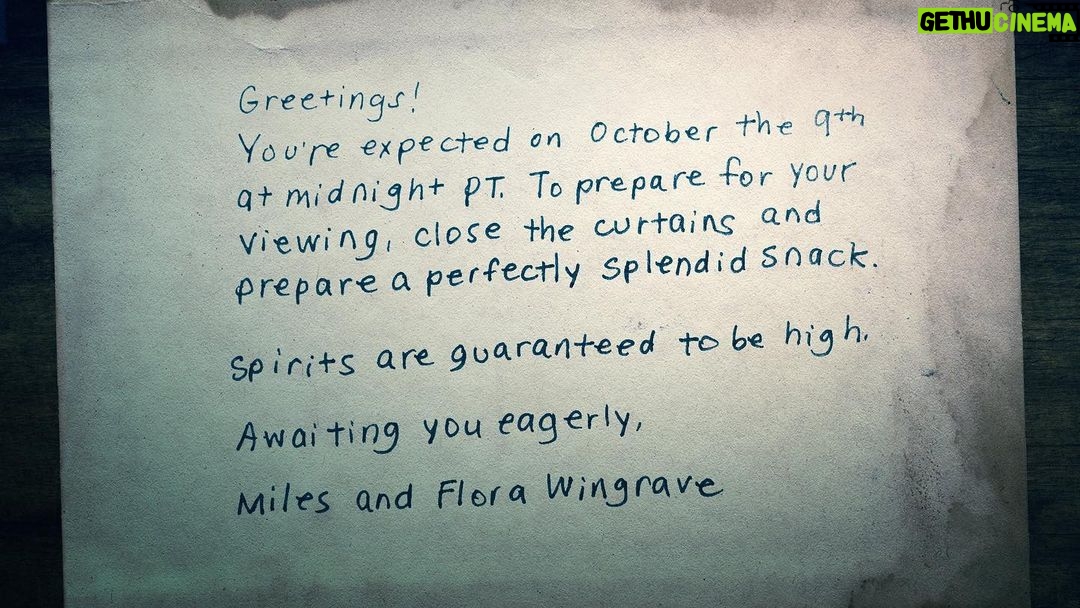 GETHUCINEMA
Greetings!
You're expected on October the 9th
at midnight PT. To prepare for your
viewing, close the curtains and
prepare a perfectly splendid snack.
Spirits are guaranteed to be high.
Awaiting you eagerly,
Miles and Flora Wingrave